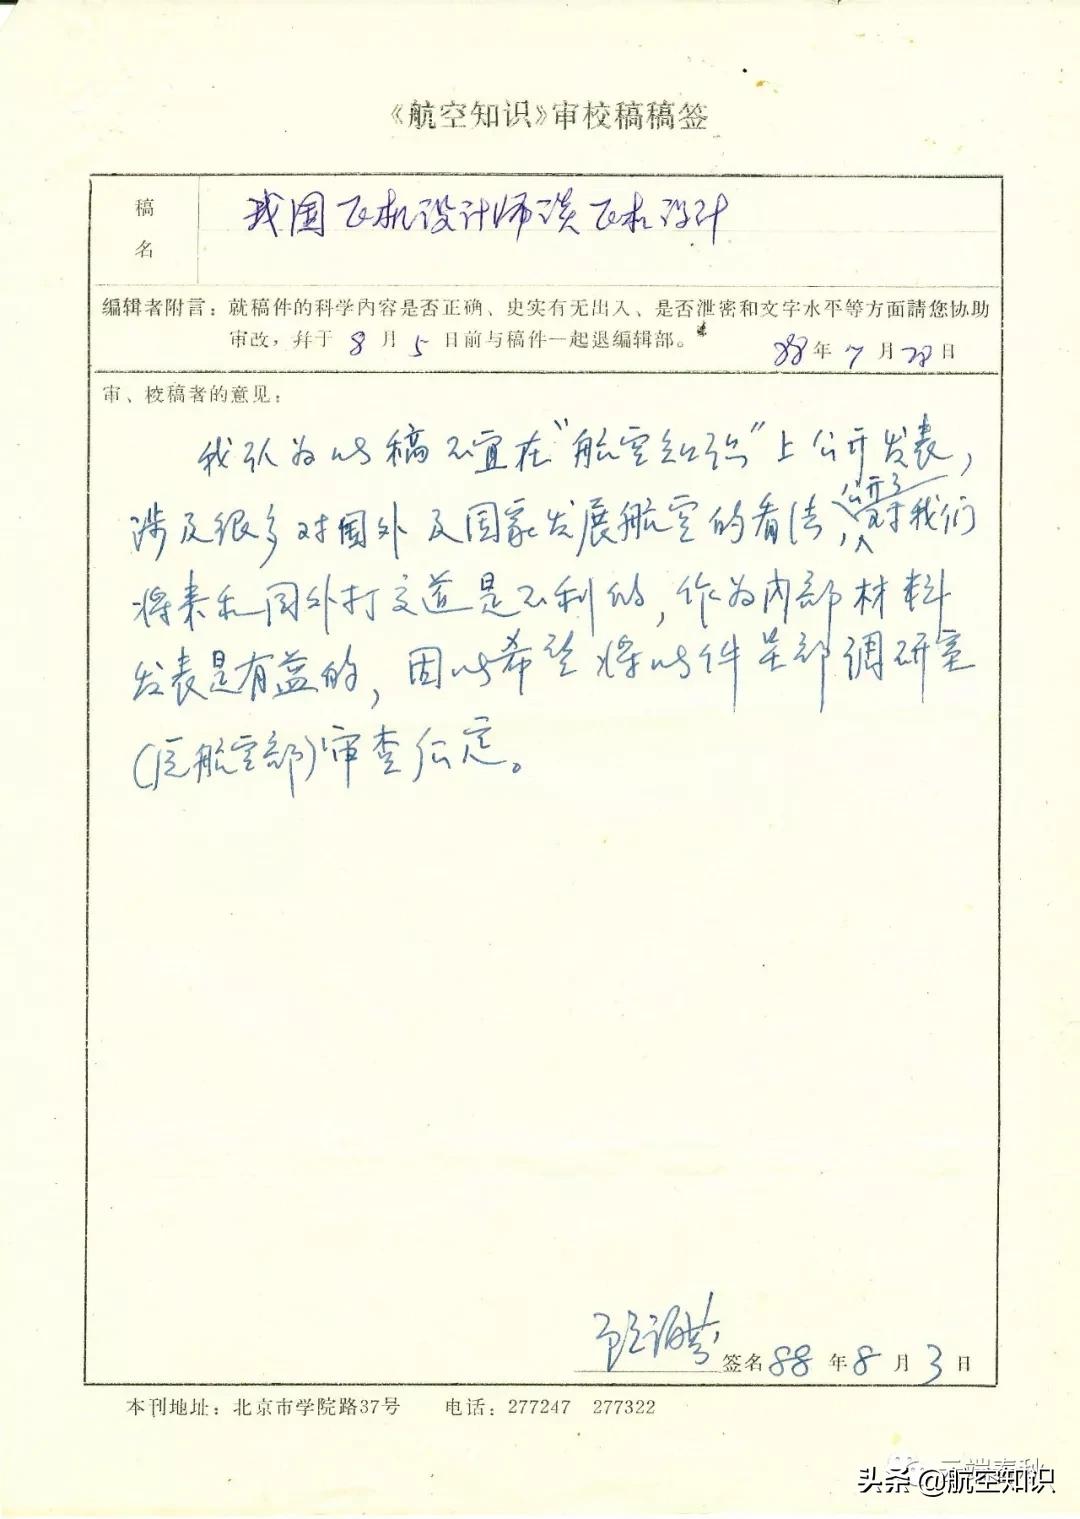 《航空知识》审校稿稿签
稿名
我国飞机设计师谈飞机设计
编辑者附言：就稿件的科学内容是否正确、史实有无出入、是否泄密和文字水平等方面請您协助
审改，幷于 8 月 5 日前与稿件一起退编辑部。
88 年 7 月 28 日
审、校稿者的意见：
我认为此稿不宜在“航空知识”上公开发表，
公开了
涉及很多对国外及国家发展航空的看法，对我们
将来和国外打交道是不利的，作为内部材料
发表是有益的，因此希望将此件呈部调研室
(原航空部)审查后定。
顾诵芬
签名 88 年 8 月 3 日
本刊地址：北京市学院路37号 电话：277247 277322
头条 @航空知识